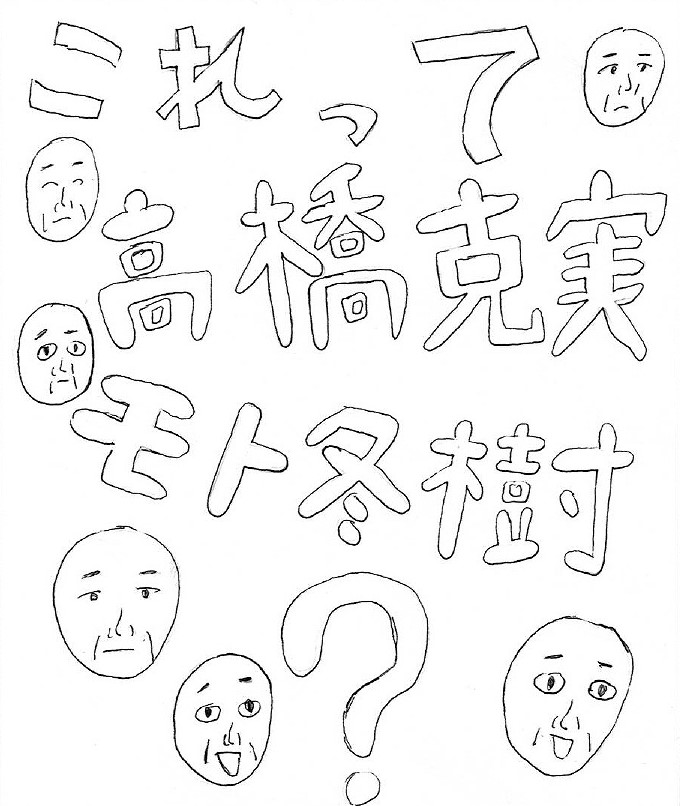 これって
高橋克実
モト冬樹
?